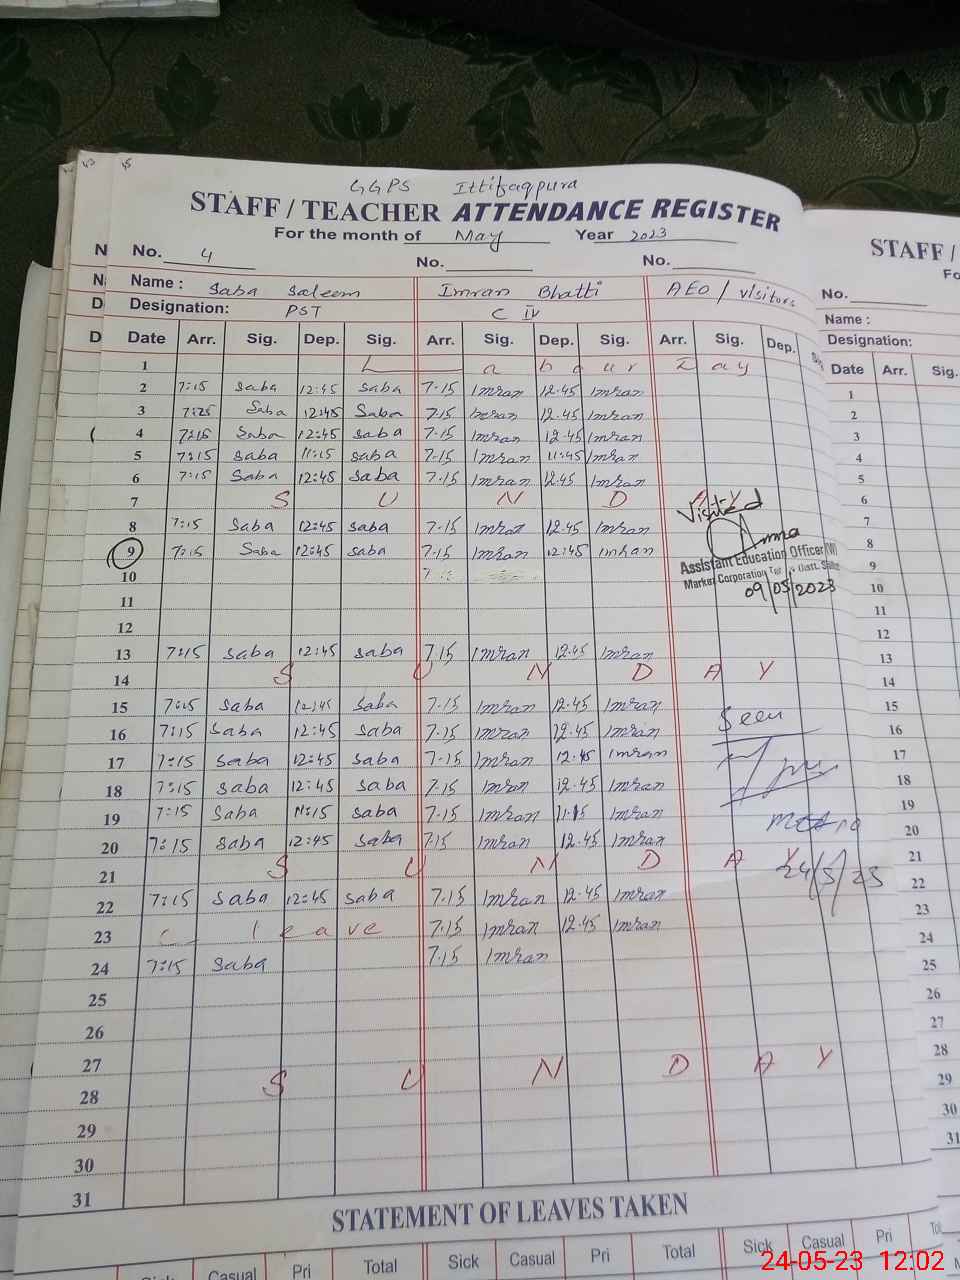 GGPS Ittifaqpura
STAFF / TEACHER ATTENDANCE REGISTER
For the month of May Year 2023
No. 4 No. No.
Name : Saba Saleem Imran Bhatti AEO / Visitors
Designation: PST C IV
Date Arr. Sig. Dep. Sig. Arr. Sig. Dep. Sig. Arr. Sig. Dep.
1 Labour Day
2 7:15 Saba 12:45 Saba 7.15 Imran 12.45 Imran
3 7:25 Saba 12:45 Saba 7.15 Imran 12.45 Imran
4 7:15 Saba 12:45 Saba 7.15 Imran 12.45 Imran
5 7:15 Saba 11:15 Saba 7.15 Imran 11:45 Imran
6 7:15 Saba 12:45 Saba 7.15 Imran 12.45 Imran
7 S U N D A Y
Visited
8 7:15 Saba 12:45 Saba 7.15 Imran 12.45 Imran
9 7:15 Saba 12:45 Saba 7.15 Imran 12:45 Imran
Assistant Education Officer (W)
Market Corporation
10
09/05/2023
11
12
13 7:15 Saba 12:45 Saba 7.15 Imran 12.45 Imran
14 S U N D A Y
15 7:15 Saba 12:45 Saba 7.15 Imran 12.45 Imran
Seen
16 7:15 Saba 12:45 Saba 7.15 Imran 12.45 Imran
17 7:15 Saba 12:45 Saba 7.15 Imran 12.45 Imran
18 7:15 Saba 12:45 Saba 7.15 Imran 12.45 Imran
19 7:15 Saba 11:15 Saba 7.15 Imran 11.15 Imran
20 7:15 Saba 12:45 Saba 7.15 Imran 12.45 Imran
21 S U N D A Y
24/5/23
22 7:15 Saba 12:45 Saba 7.15 Imran 12.45 Imran
23 C leave 7.15 Imran 12.45 Imran
24 7:15 Saba 7.15 Imran
25
26
27
28 S U N D A Y
29
30
31
STATEMENT OF LEAVES TAKEN
Sick Casual Pri Total Sick Casual Pri Total Sick Casual Pri
STAFF /
No.
Name :
Designation:
Date Arr. Sig.
1
2
3
4
5
6
7
8
9
10
11
12
13
14
15
16
17
18
19
20
21
22
23
24
25
26
27
28
29
30
31
24-05-23 12:02